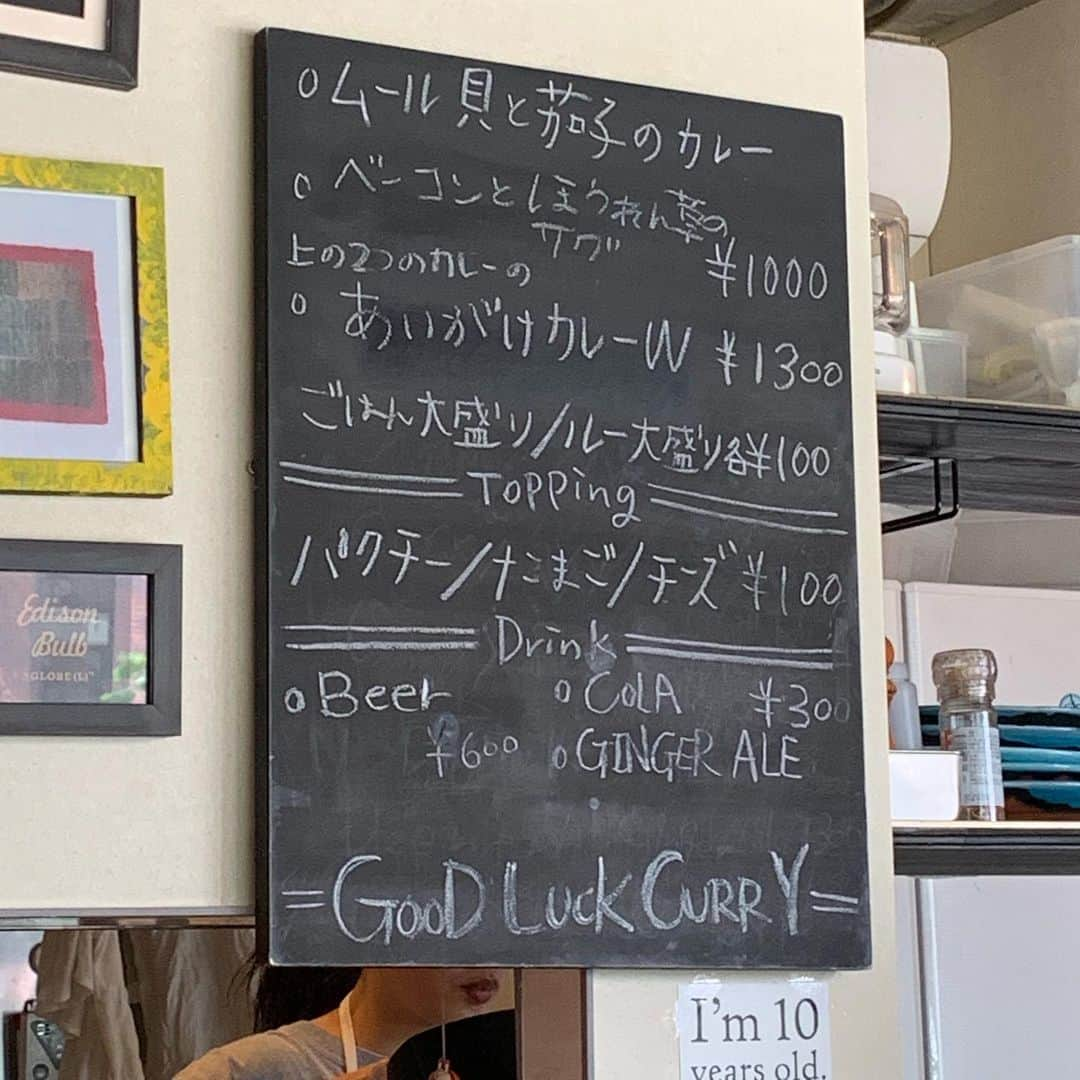 ○ムール貝と茄子のカレー
○ベーコンとほうれん草の
サグ
¥1000
上の2つのカレーの
○あいがけカレーW ¥1300
ごはん大盛り/ルー大盛り各¥100
Topping
パクチー/たまご/チーズ¥100
Drink
○Beer ○COLA ¥300
¥600 ○GINGER ALE
=GOOD LUCK CURRY=
Edison
Bulb
GLOBE(L)
I'm 10
years old.